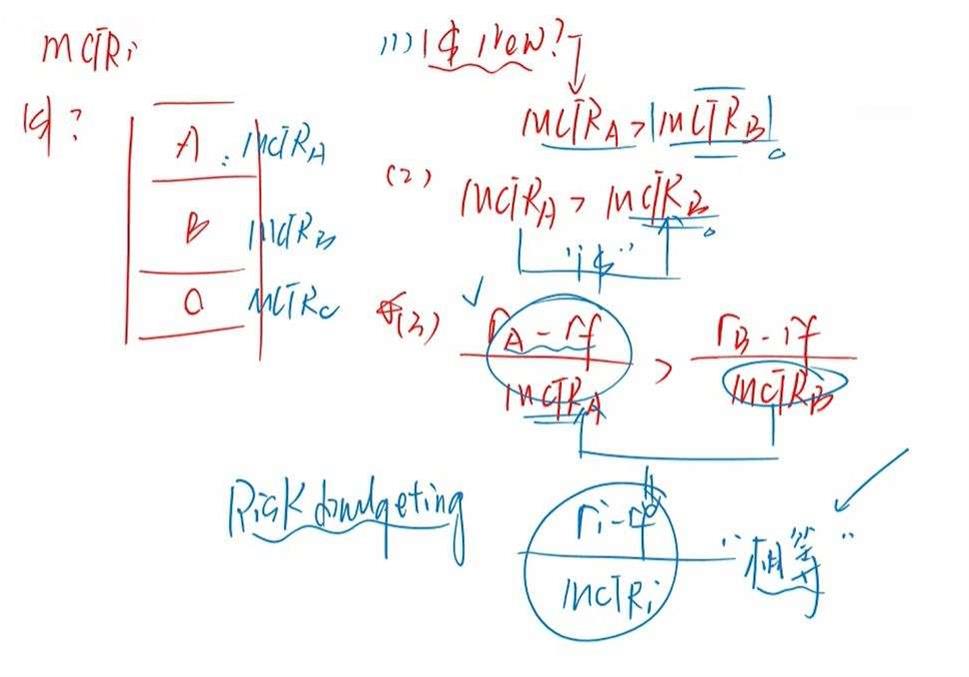 MCTRi
1$?
A MCTRA
B MCTRB
C MCTRC
(1) 1$ new?
MCTRA > MCTRB
(2) MCTRA > MCTRB
"1$"
(3) rA - rf / MCTRA > rB - rf / MCTRB
Risk budgeting
ri - rf / MCTRi "相等"